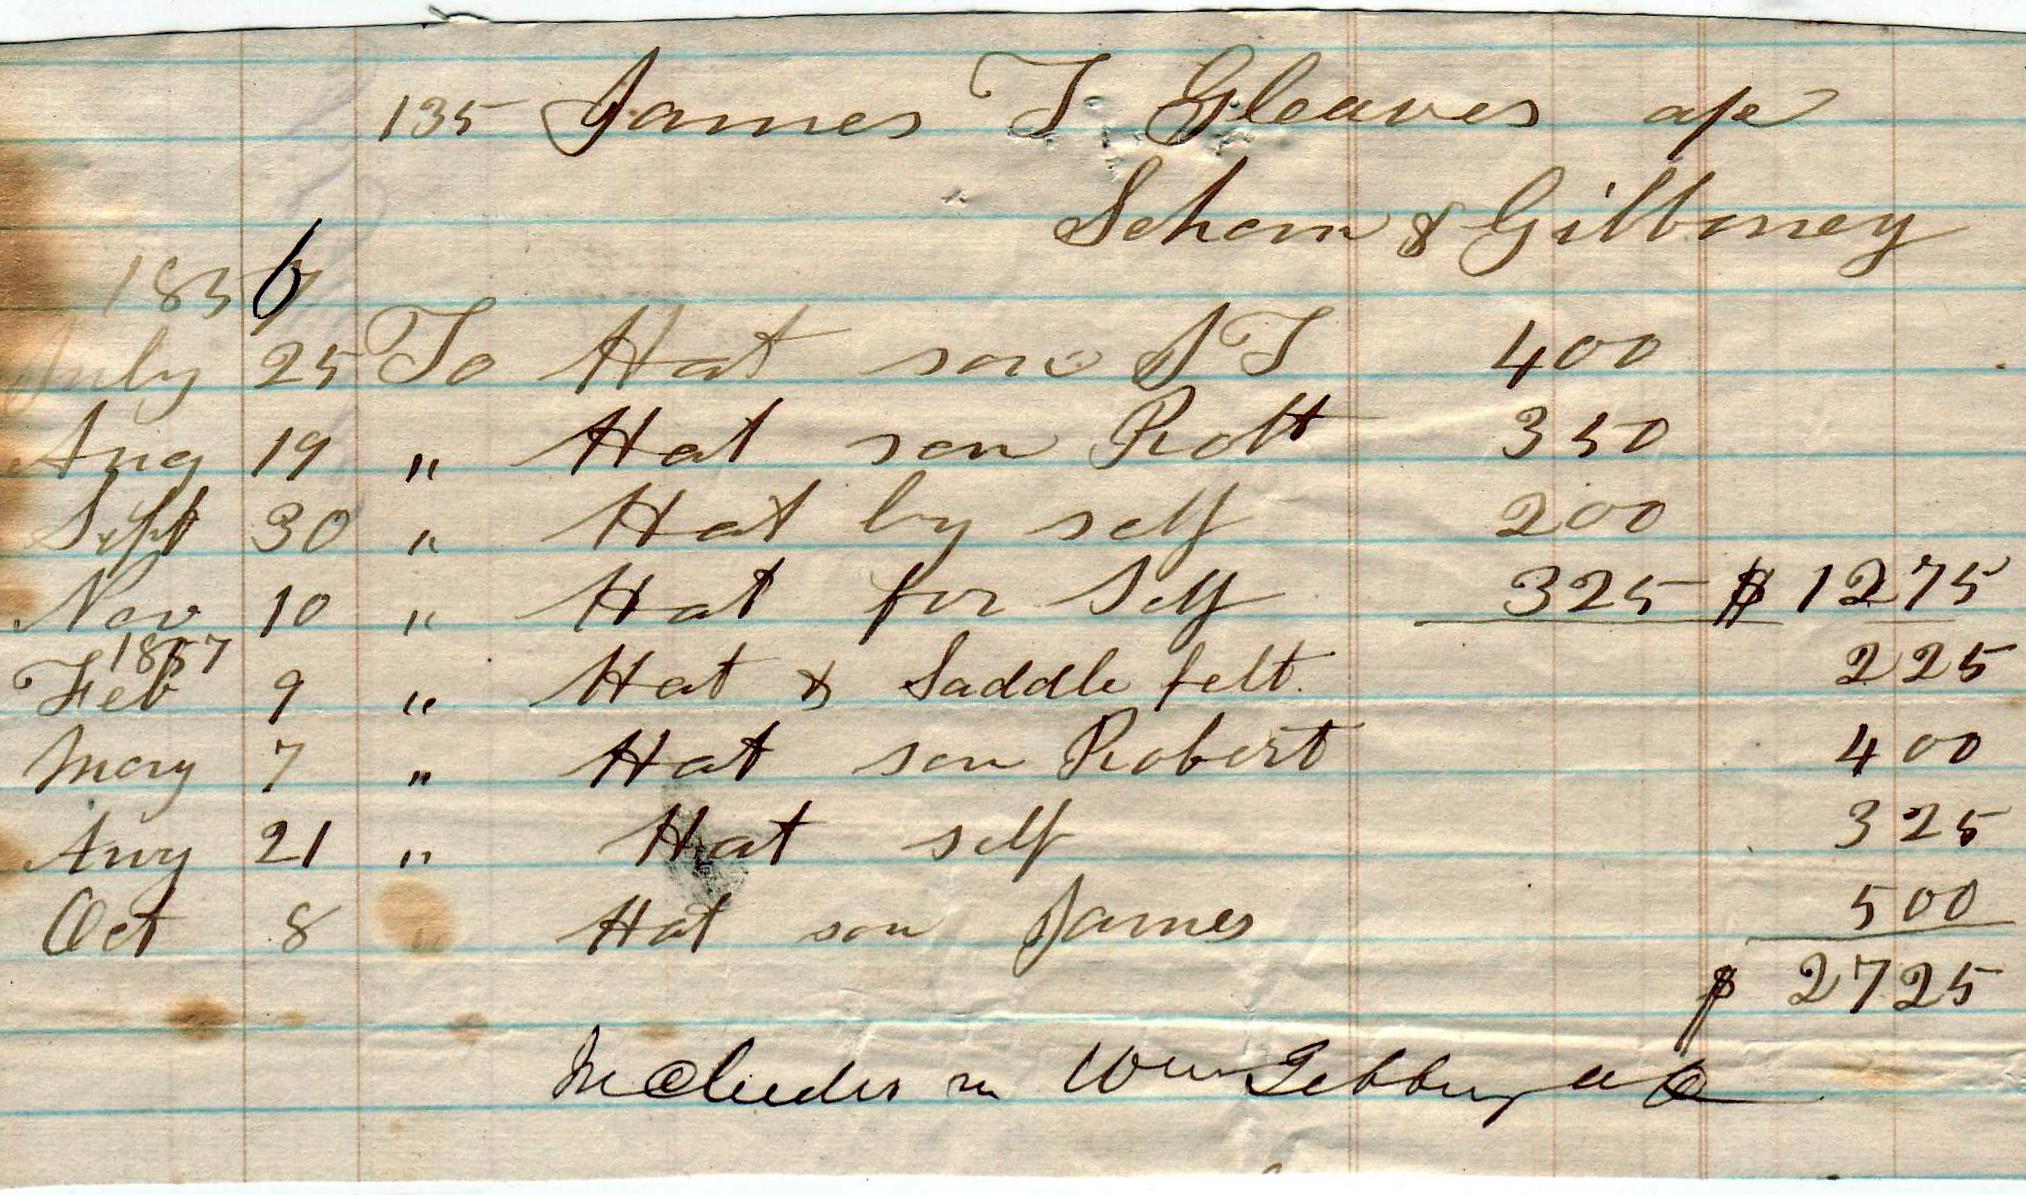 135 James T Gleaves a/c
Schom & Gibboney
1856
July 25 To Hat son J T 400
Aug 19 " Hat son Robt 350
Sept 30 " Hat by self 200
Nov 10 " Hat for Self 325 $ 1275
1857
Feb 9 " Hat & Saddle felt. 225
May 7 " Hat son Robert 400
Aug 21 " Hat self 325
Oct 8 " Hat son James 500
$ 2725
Included in Wm Gibboney a/c